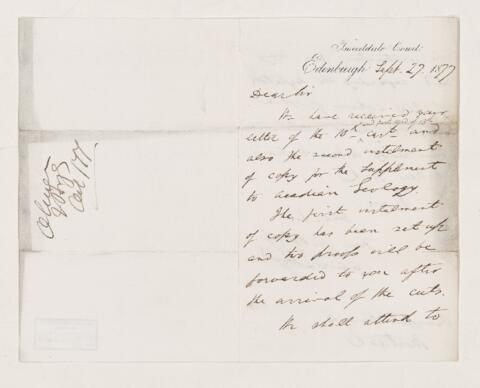 Tweeddale Court.
Edinburgh Sept. 27. 1877
Dear Sir
We have received your
and post card of 13th
letter of the 10th curt. and
also the second instalment
of copy for the Supplement
to Acadian Geology.
The first instalment
of copy has been set up
and two proofs will be
forwarded to you after
the arrival of the cuts.
We shall attend to
Oliver
Boyd